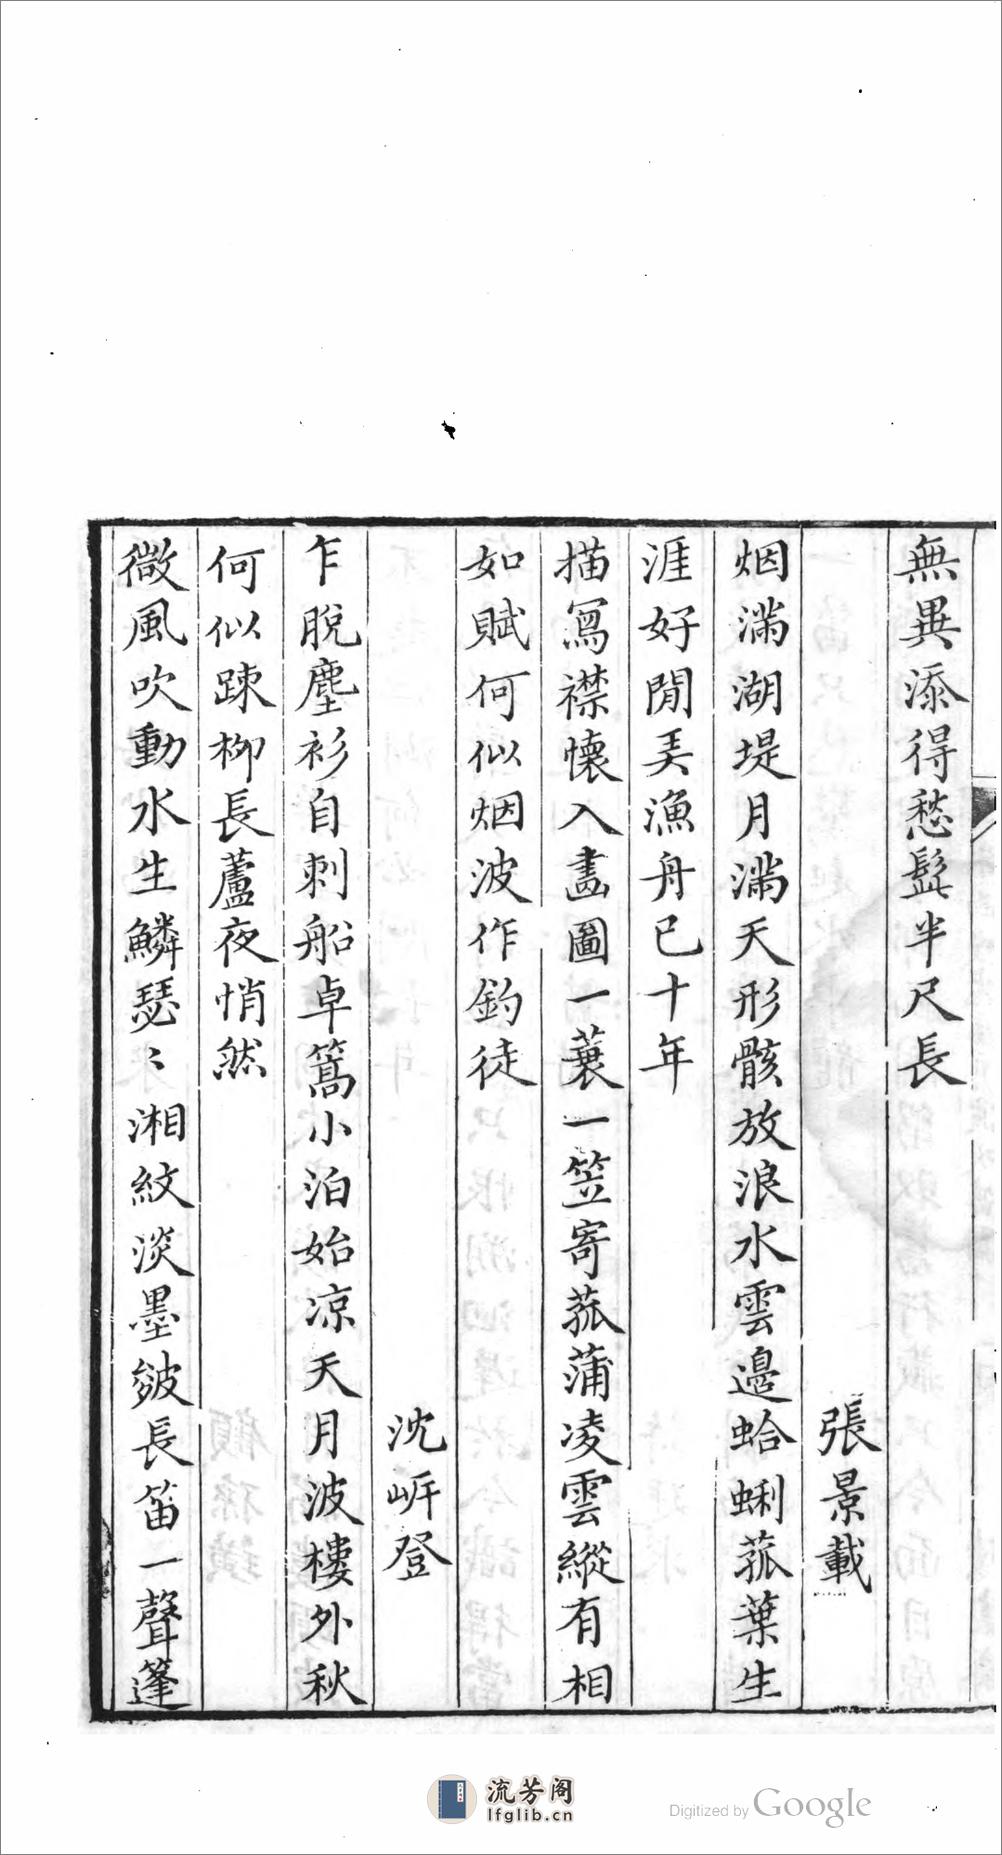 無異添得愁髭半尺長
張景載
烟滿湖堤月滿天形骸放浪水雲邉蛤蜊菰葉生
涯好閒美漁舟已十年
描寫襟懐入畵圖一蓑一笠寄菰蒲凌雲縱有相
如賦何似烟波作釣徒
沈岍登
乍脫塵衫自刺船卓篙小泊始凉天月波樓外秋
何似踈栁長蘆夜悄然
微風吹動水生鱗瑟〻湘紋淡墨皴長笛一聲篷
流芳阁
lfglib.cn
Digitized by Google